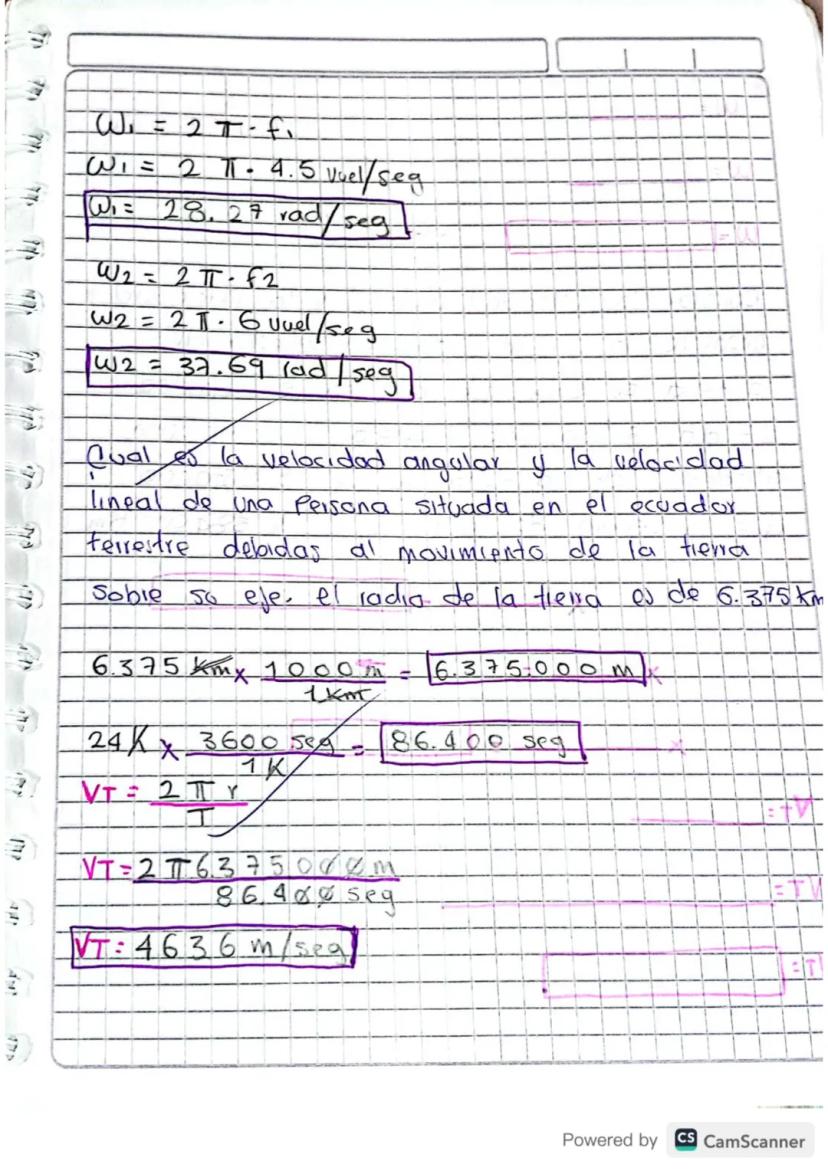 W₁ = 2 π · f₁
W₁ = 2 π · 4.5 vuel/seg
W₁ = 28.27 rad/seg
W2 = 2 π · f2
W2 = 2 π · 6 vuel/seg
W2 = 37.69 rad/seg
Cual es la velocidad angular y la velocidad
lineal de una Persona situada en el ecuador
terrestre debidas al movimiento de la tierra
sobre su eje. el radio de la tierra es de 6.375 Km
6.375 Km x 1000 m / 1 Km = 6.375.000 m
24 K x 3600 seg / 1 K = 86.400 seg
VT = 2 π r / T
VT = 2 π 6.375000 m / 86.400 seg
VT = 4636 m/seg
Powered by CS CamScanner